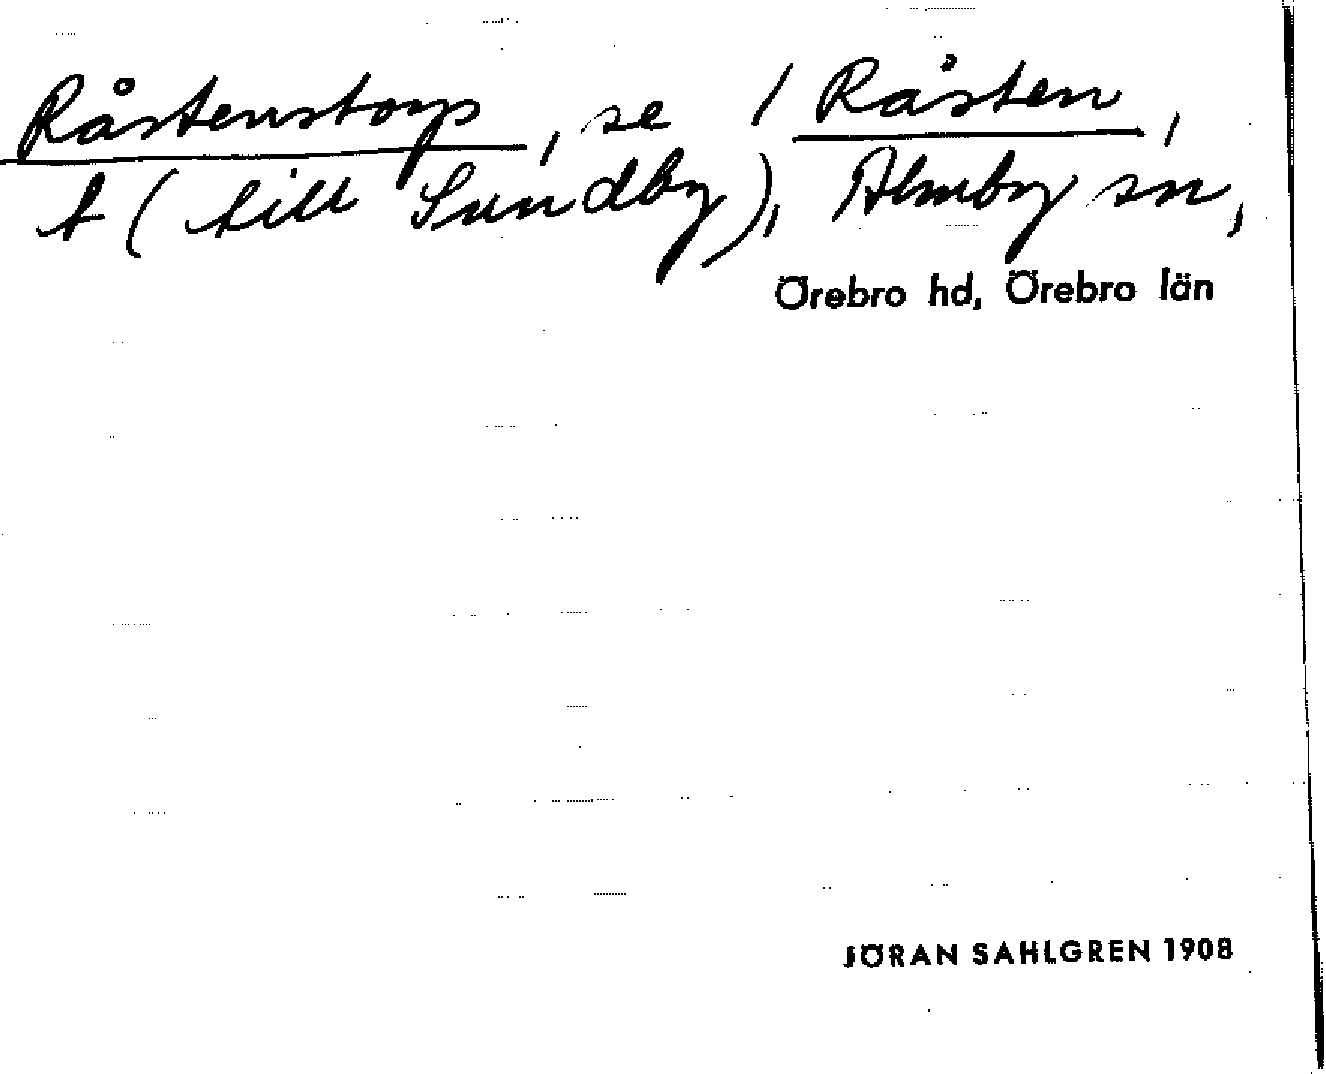 Råstenstorp, se / Råsten,
t (till Sundby), Almby sn,
Örebro hd, Örebro län
JÖRAN SAHLGREN 1908